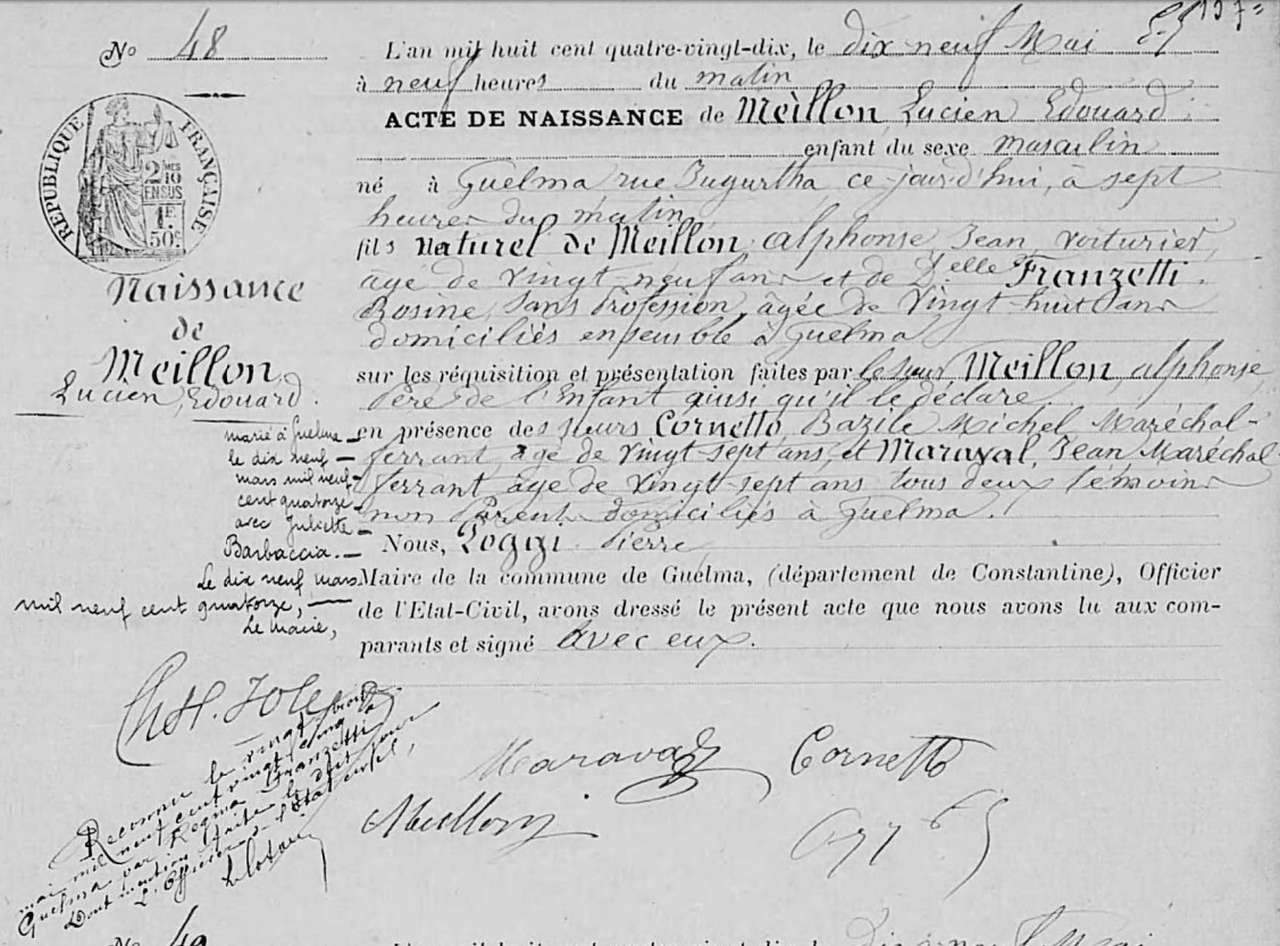 137=
N° 48
L'an mil huit cent quatre-vingt-dix, le dix neuf Mai
à neuf heures du matin
ACTE DE NAISSANCE de Meillon Lucien Edouard
enfant du sexe masculin
né à Guelma rue Jugurtha, ce jourd'hui, à sept
heures du matin
fils naturel de Meillon alphonse Jean, voiturier,
âgé de vingt-neuf ans et de Delle Franzetti
Rosine, sans Profession, âgée de vingt-huit ans
domiciliés ensemble à Guelma
sur les réquisition et présentation faites par le sieur Meillon, alphonse
Père de l'Enfant ainsi qu'il le déclare.
en présence des sieurs Cornetto, Bazile Michel Maréchal-
ferrant, agé de vingt sept ans, et Maraval, Jean Maréchal-
ferrant âgé de vingt-sept ans tous deux témoins
non Parents domiciliés à Guelma.
Nous, Poggi Pierre
Maire de la commune de Guelma, (département de Constantine), Officier
de l'Etat-Civil, avons dressé le présent acte que nous avons lu aux com-
parants et signé avec eux.
REPUBLIQUE FRANÇAISE
2 MES
10
EN SUS
1F.
50C.
Naissance
de
Meillon
Lucien, Edouard.
marié à Guelma
le dix neuf
mars mil neuf
cent quatorze
avec Juliette
Barbaccia.
Le dix neuf mars
mil neuf cent quatorze,
Le Maire,
Reconnu le vingt trois
mai mil neuf cent vingt cinq à
Guelma par Regina Franzetti
Dont mention faite le dit jour
L'Officier de l'Etat civil,
Maraval Cornetto
Meillon
N° 49
L'an mil huit cent quatre-vingt-dix, le dix neuf Mai